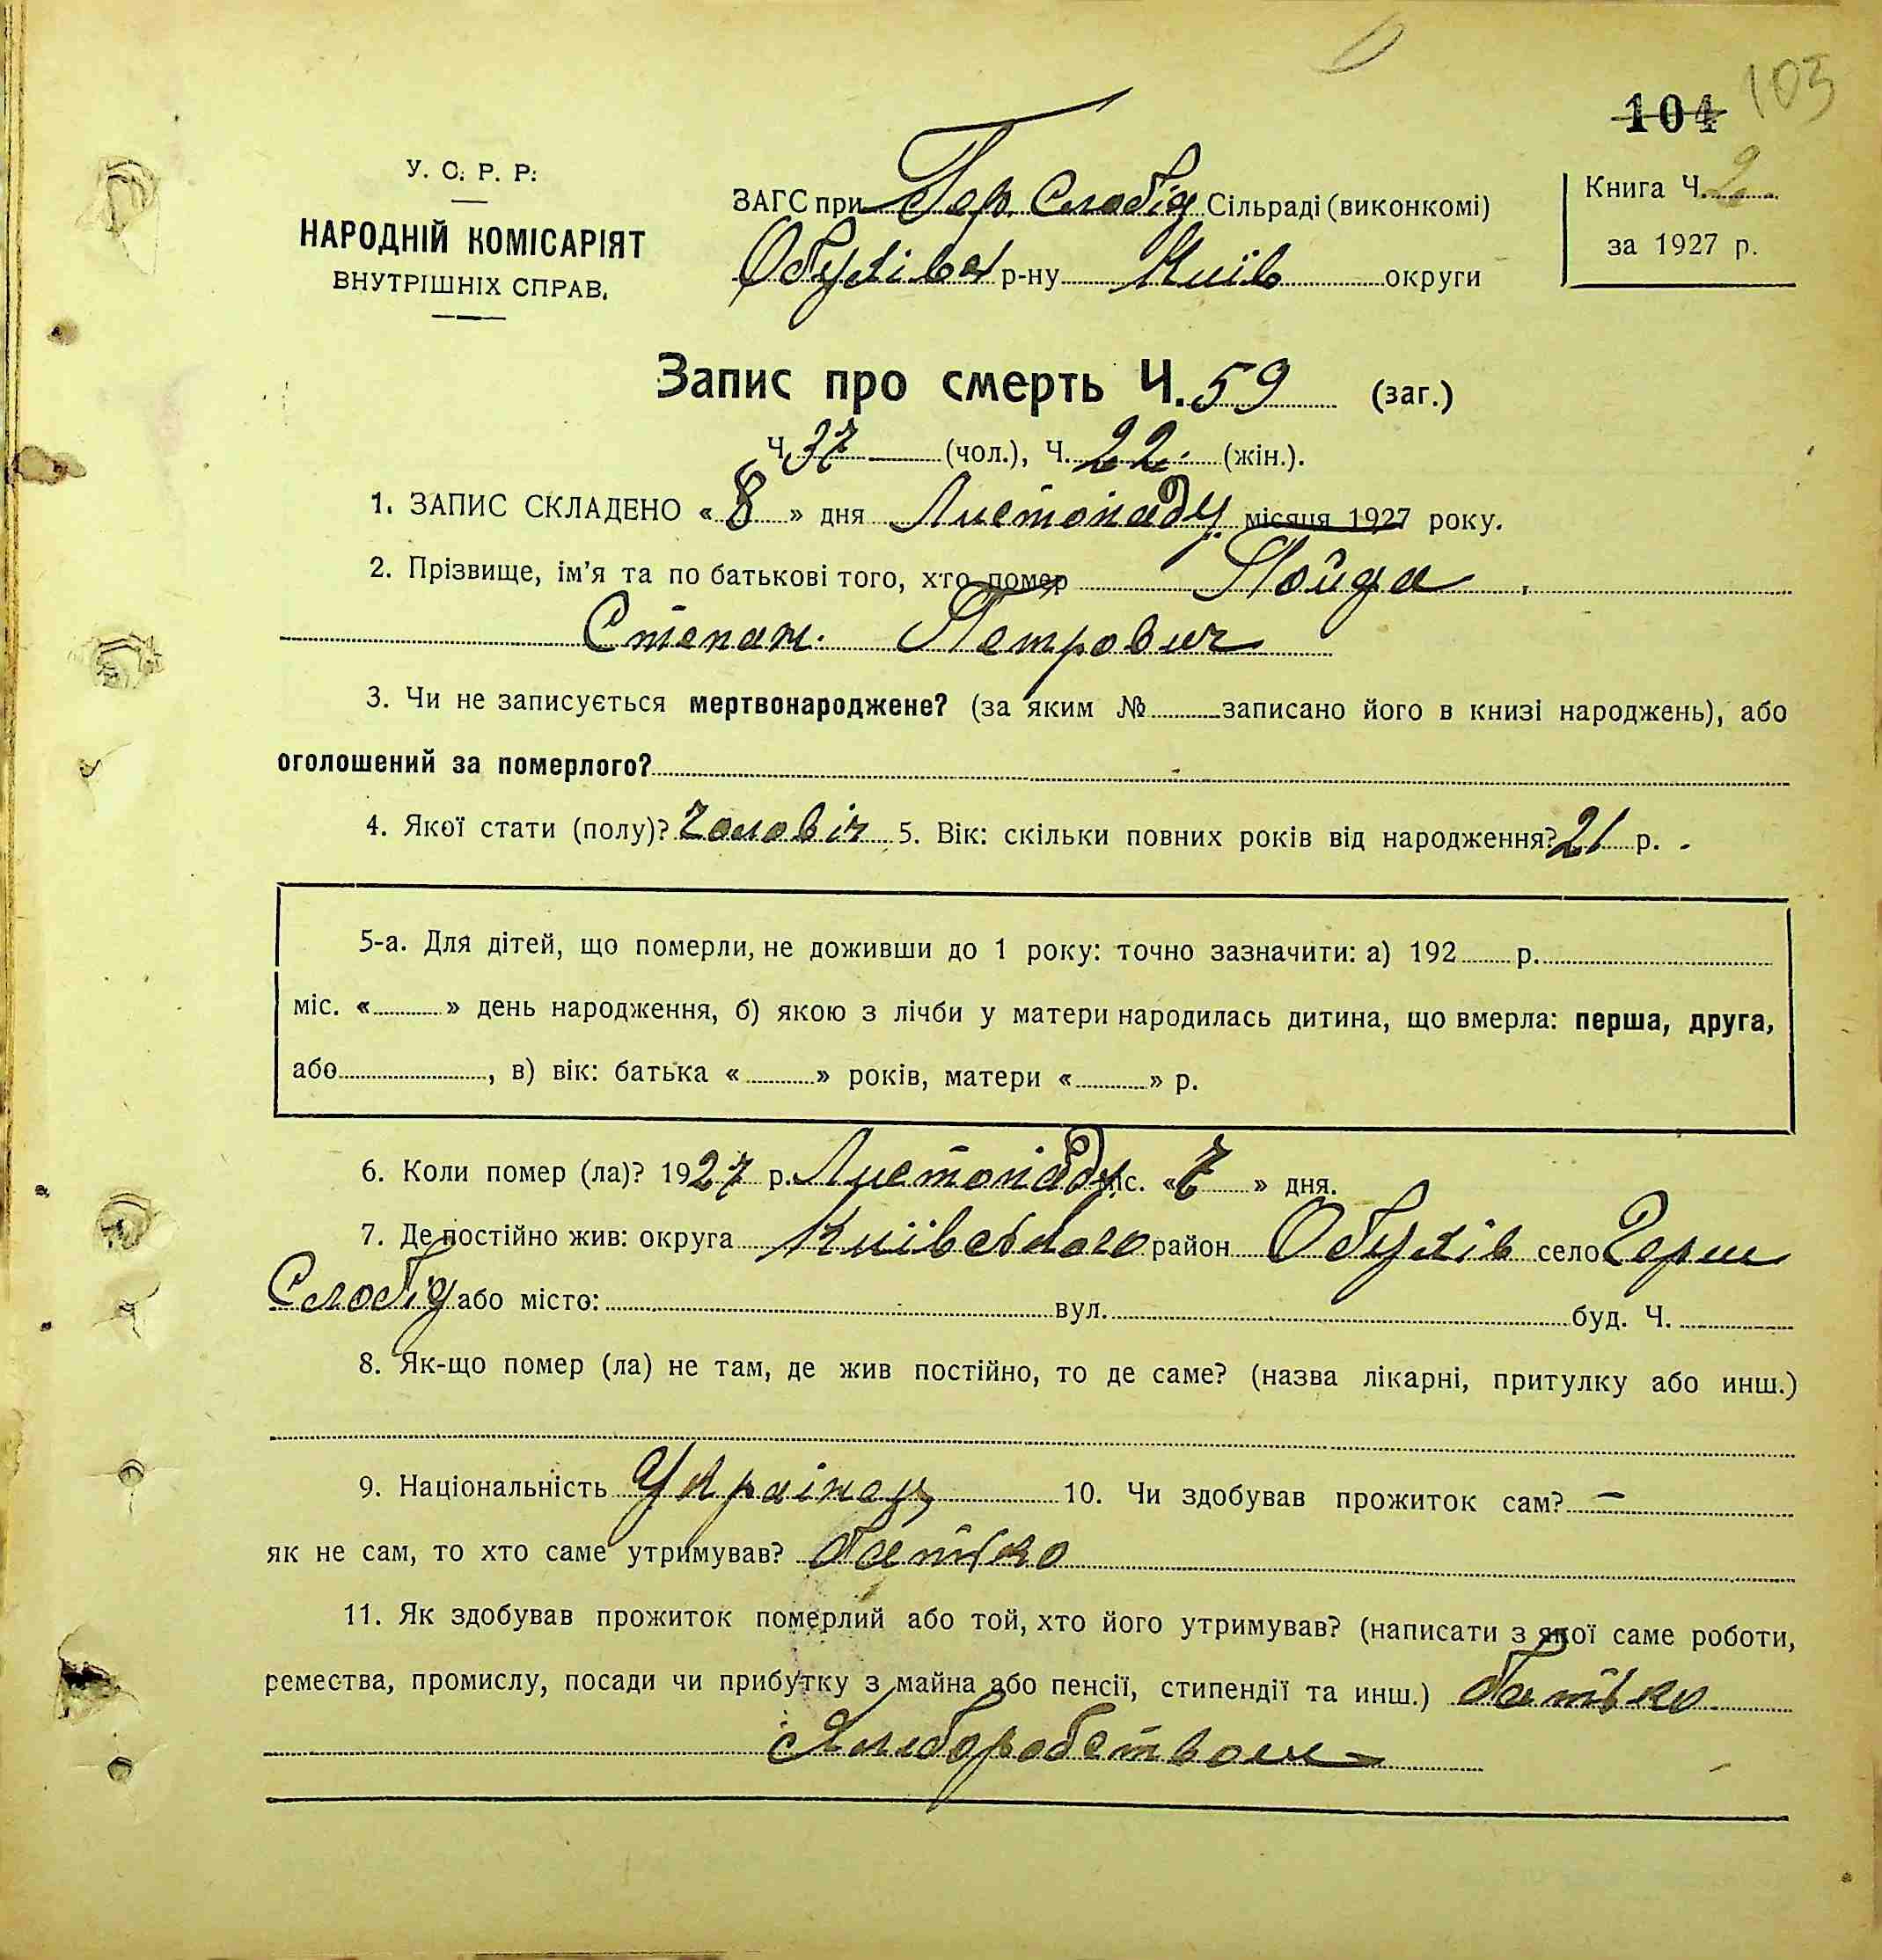 104 103
У. С. Р. Р.
НАРОДНІЙ КОМІСАРІЯТ
ВНУТРІШНІХ СПРАВ.
ЗАГС при Гер. Слобід Сільраді (виконкомі)
Обухівсь р-ну Київ округи
Книга Ч. 2
за 1927 р.
Запис про смерть Ч. 59 (заг.)
Ч. 37 (чол.), Ч. 22. (жін.).
1. ЗАПИС СКЛАДЕНО «8» дня Листопаду місяця 1927 року.
2. Прізвище, ім'я та по батькові того, хто помер Пойда
Степан Петрович
3. Чи не записується мертвонароджене? (за яким № записано його в книзі народжень), або
оголошений за померлого?
4. Якої стати (полу)? Чоловіч 5. Вік: скільки повних років від народження? 21 р.
5-а. Для дітей, що померли, не доживши до 1 року: точно зазначити: а) 192 р.
міс. « » день народження, б) якою з лічби у матери народилась дитина, що вмерла: перша, друга,
або , в) вік: батька « » років, матери « » р.
6. Коли помер (ла)? 1927 р. Листопаду міс. «7» дня.
7. Де постійно жив: округа Київського район Обухів село Герм
Слобід або місто: вул. буд. Ч.
8. Як-що помер (ла) не там, де жив постійно, то де саме? (назва лікарні, притулку або инш.)
9. Національність Українец 10. Чи здобував прожиток сам? —
як не сам, то хто саме утримував? батько
11. Як здобував прожиток померлий або той, хто його утримував? (написати з якої саме роботи,
ремества, промислу, посади чи прибутку з майна або пенсії, стипендії та инш.) батько
Хліборобством